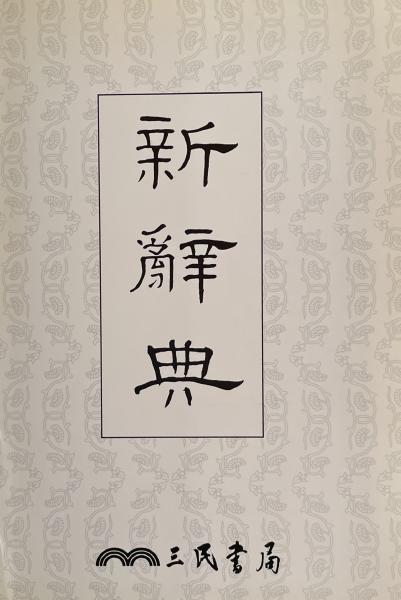 新辭典
三民書局